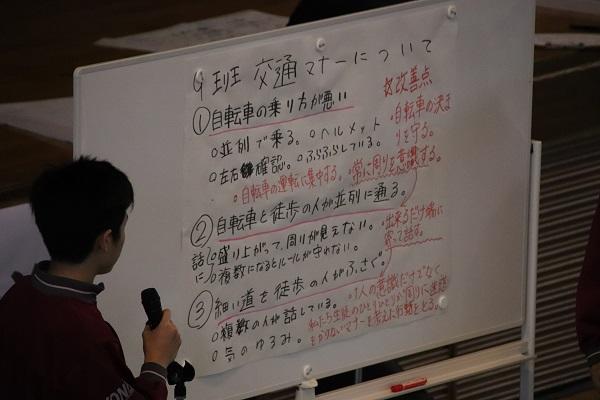 9班 交通マナーについて
改善点
①自転車の乗り方が悪い
・自転車の決まりを守る。
○並列で乗る。○ヘルメット
○左右確認。○ふらふらしている。
・自転車の運転に集中する。
・常に周りを意識する。
②自転車と徒歩の人が並列に通る。
○盛り上がって、周りが見えない。
話に
○複数になるとルールが守れない。
・出来るだけ端に
寄って話す。
③細い道を徒歩の人がふさぐ。
○複数の人が話している。
○気のゆるみ。
・1人の意識だけでなく
私たち生徒のひとりひとりが周りに迷惑
をかけないマナーを考えた行動をとる。